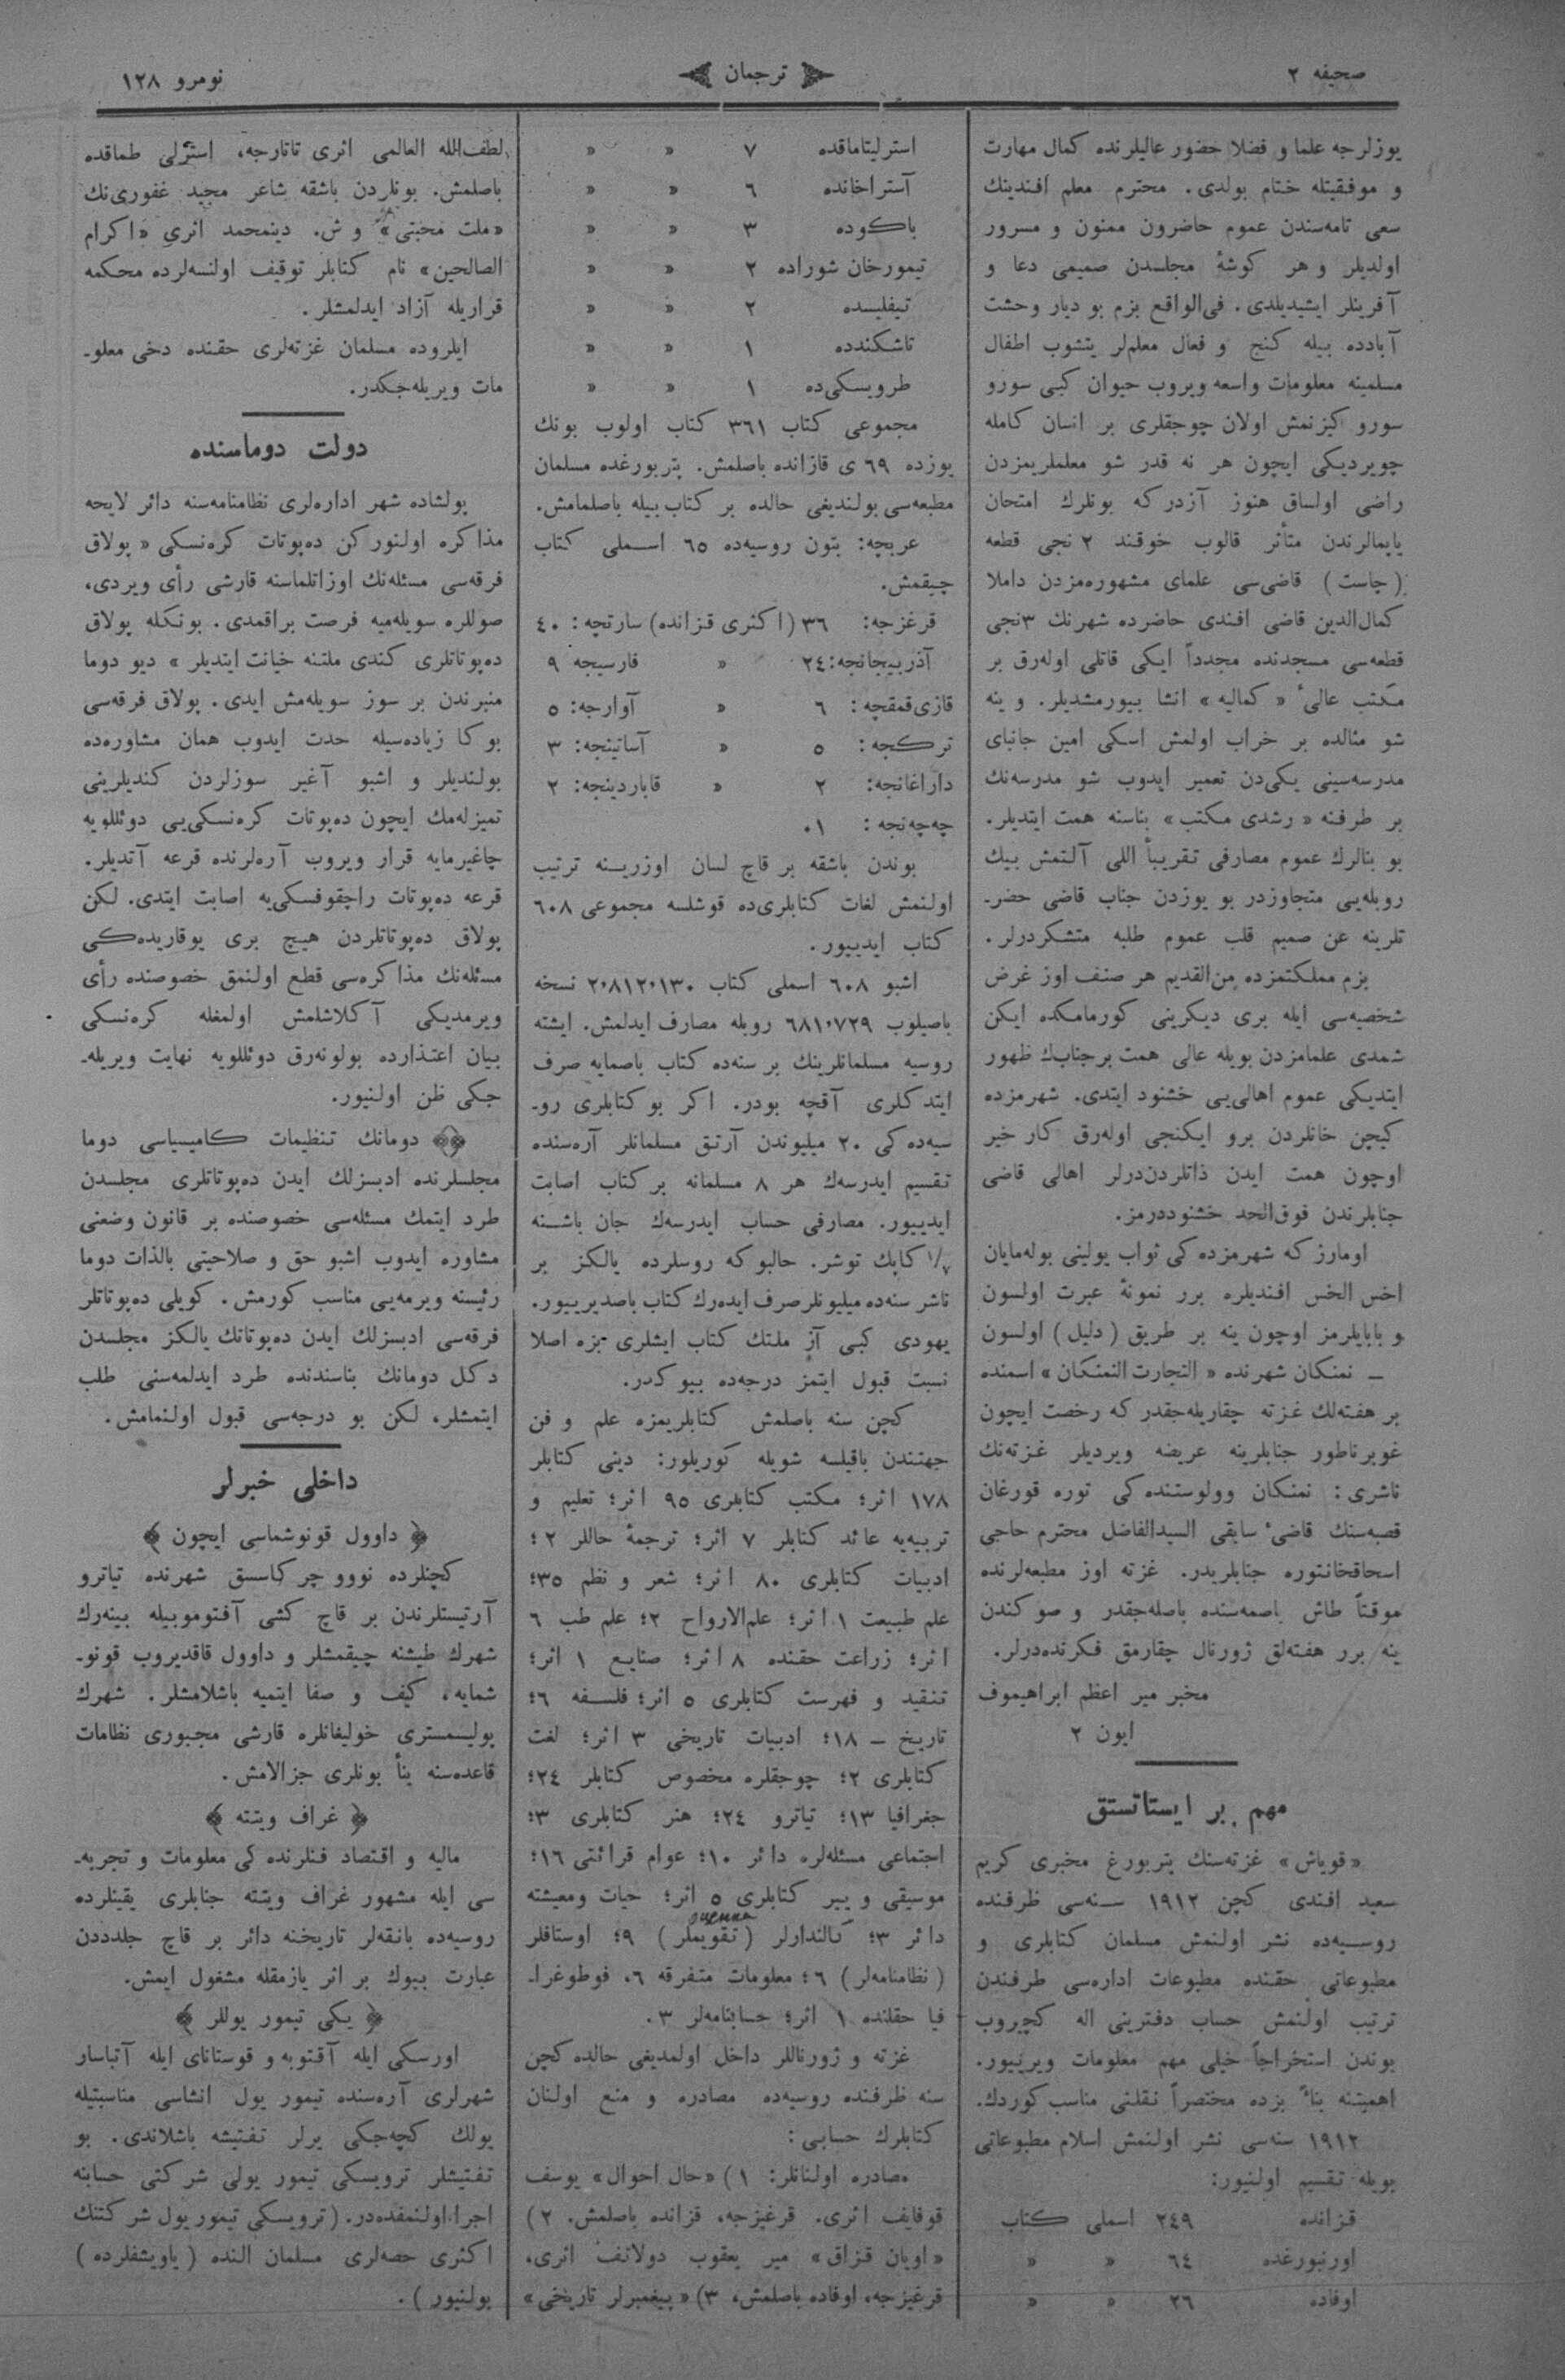 صحیفه ٢
ترجمان
نومرو ١٢٨
یوزلرجه علما و فضلا حضور عالیلرنده کمال مهارت
و موفقیتله ختام بولدی. محترم معلم افندینك
سعی تامه‌سندن عموم حاضرون ممنون و مسرور
اولدیلر و هر کوشهٔ مجلسدن صمیمی دعا و
آفرینلر ایشیدیلدی. فی‌الواقع بزم بو دیار وحشت
آبادده بیله کنج و فعال معلم‌لر یتشوب اطفال
مسلمینه معلومات واسعه ویروب حیوان کبی سورو
سورو کیزنمش اولان چوجقلری بر انسان کامله
چویردیکی ایچون هر نه قدر شو معلملریمزدن
راضی اولساق هنوز آزدرکه بونلرك امتحان
یاپمالرندن متأثر قالوب خوقند ٢ نجی قطعه
(چاست) قاضی‌سی علمای مشهوره‌مزدن داملا
کمال‌الدین قاضی افندی حاضرده شهرنك ٣نجی
قطعه‌سی مسجدنده مجدداً ایکی قاتلی اوله‌رق بر
مکتب عالیٔ « کمالیه » انشا بیورمشدیلر. و ینه
شو مثالده بر خراب اولمش اسکی امین جانبای
مدرسه‌سینی یکی‌دن تعمیر ایدوب شو مدرسه‌نك
بر طرفنه « رشدی مکتب » بناسنه همت ایتدیلر.
بو بنالرك عموم مصارفی تقریباً اللی آلتمش بیك
روبله‌یی متجاوزدر بو یوزدن جناب قاضی حضر-
تلرینه عن صمیم قلب عموم طلبه متشکردرلر.
بزم مملکتمزده من‌القدیم هر صنف اوز غرض
شخصیه‌سی ایله بری دیکرینی کورمامکده ایکن
شمدی علمامزدن بویله عالی همت برجنابك ظهور
ایتدیکی عموم اهالی‌یی خشنود ایتدی. شهرمزده
کیچن خانلردن برو ایکنجی اوله‌رق کار خیر
اوچون همت ایدن ذاتلردن‌درلر اهالی قاضی
جنابلرندن فوق‌الحد خشنوددرمز.
اومارز که شهرمزده کی ثواب یولینی بوله‌مایان
اخس الخس افندیلره برر نمونهٔ عبرت اولسون
و بابایلرمز اوچون ینه بر طریق (دلیل) اولسون
ـ نمنکان شهرنده « التجارت النمنکان » اسمنده
بر هفته‌لك غزته چقاریله‌جقدر که رخصت ایچون
غوبرناطور جنابلرینه عریضه ویردیلر غزته‌نك
ناشری: نمنکان وولوستنده کی توره قورغان
قصبه‌سنك قاضیٔ سابقی السیدالفاضل محترم حاجی
اسحاقخانتوره جنابلریدر. غزته اوز مطبعه‌لرنده
موقتاً طاش باصمه‌سنده باصله‌جقدر و صوکندن
ینه برر هفته‌لق ژورنال چقارمق فکرنده‌درلر.
مخبر میر اعظم ابراهیموف
ایون ٢
مهم بر ایستاتستق
«قویاش» غزته‌سنك پتربورغ مخبری کریم
سعید افندی کچن ١٩١٢ سنه‌سی ظرفنده
روسیه‌ده نشر اولنمش مسلمان کتابلری و
مطبوعاتی حقنده مطبوعات اداره‌سی طرفندن
ترتیب اولنمش حساب دفترینی اله کچیروب
بوندن استخراجاً خیلی مهم معلومات ویرییور.
اهمیتنه بناءً بزده مختصراً نقلنی مناسب کوردك.
١٩١٢ سنه‌سی نشر اولنمش اسلام مطبوعاتی
بویله تقسیم اولنیور:
قزانده ٢٤٩ اسملی کتاب
اورنبورغده ٦٤ » »
اوفاده ٢٦ » »
استرلیتاماقده ٧ » »
آستراخانده ٦ » »
باکوده ٣ » »
تیمورخان شوراده ٢ » »
تیفلیسده ٢ » »
تاشکندده ١ » »
طرویسکی‌ده ١ » »
مجموعی کتاب ٣٦١ کتاب اولوب بونك
یوزده ٦٩ ی قازانده باصلمش. پتربورغده مسلمان
مطبعه‌سی بولندیغی حالده بر کتاب بیله باصلمامش.
عربچه: بتون روسیه‌ده ٦٥ اسملی کتاب
چیقمش.
قرغزجه: ٣٦ (اکثری قزانده) سارتچه: ٤٠
آذربیجانجه: ٢٤ » فارسیجه ٩
قازی‌قمقچه: ٦ » آوارجه: ٥
ترکجه: ٥ » آساتینجه: ٣
داراغانجه: ٢ » قاباردینجه: ٢
چه‌چه‌نجه: ٠١
بوندن باشقه بر قاچ لسان اوزرینه ترتیب
اولنمش لغات کتابلری‌ده قوشلسه مجموعی ٦٠٨
کتاب ایدییور.
اشبو ٦٠٨ اسملی کتاب ٢٠٨١٢٠١٣٠ نسخه
باصیلوب ٦٨١٠٧٢٩ روبله مصارف ایدلمش. ایشته
روسیه مسلمانلرینك بر سنه‌ده کتاب باصمایه صرف
ایتدکلری آقچه بودر. اکر بو کتابلری رو-
سیه‌ده کی ٢٠ میلیوندن آرتق مسلمانلر آره‌سنده
تقسیم ایدرسه‌ك هر ٨ مسلمانه بر کتاب اصابت
ایدییور. مصارفی حساب ایدرسه‌ك جان باشنه
١/٧ کاپك توشر. حالبوکه روسلرده یالکز بر
ناشر سنه‌ده میلیونلر صرف ایده‌رك کتاب باصدیرییور.
یهودی کبی آز ملتك کتاب ایشلری بزه اصلا
نسبت قبول ایتمز درجه‌ده بیوکدر.
کچن سنه باصلمش کتابلریمزه علم و فن
جهتندن باقیلسه شویله کوریلور: دینی کتابلر
١٧٨ اثر؛ مکتب کتابلری ٩٥ اثر؛ تعلیم و
تربیه‌یه عائد کتابلر ٧ اثر؛ ترجمهٔ حاللر ٢؛
ادبیات کتابلری ٨٠ اثر؛ شعر و نظم ٣٥؛
علم طبیعت ١ اثر؛ علم‌الارواح ٢؛ علم طب ٦
اثر؛ زراعت حقنده ٨ اثر؛ صنایع ١ اثر؛
تنقید و فهرست کتابلری ٥ اثر؛ فلسفه ٦؛
تاریخ ـ ١٨؛ ادبیات تاریخی ٣ اثر؛ لغت
کتابلری ٢؛ چوجقلره مخصوص کتابلر ٢٤؛
جغرافیا ١٣؛ تیاترو ٢٤؛ هنر کتابلری ٣؛
اجتماعی مسئله‌لره دائر ١٠؛ عوام قرائتی ١٦؛
موسیقی و ییر کتابلری ٥ اثر؛ حیات ومعیشته
دائر ٣؛ کالندارلر (تقویملر) ٩؛ اوستافلر
(نظامنامه‌لر) ٦؛ معلومات متفرقه ٦. فوطوغرا-
فیا حقلنده ١ اثر؛ حسابنامه‌لر ٣.
غزته و ژورناللر داخل اولمدیغی حالده کچن
سنه ظرفنده روسیه‌ده مصادره و منع اولنان
کتابلرك حسابی:
مصادره اولنانلر: ١) «حال احوال» یوسف
قوفایف اثری. قرغیزجه، قزانده باصلمش. ٢)
«اویان قزاق» میر یعقوب دولاتف اثری.
قرغیزجه، اوفاده باصلمش، ٣) «پیغمبرلر تاریخی»
لطف‌الله العالمی اثری تاتارجه، استرلی طماقده
باصلمش. بونلردن باشقه شاعر مجید غفوری‌نك
«ملت محبتی» و ش. دینمحمد اثری «اکرام
الصالحین» نام کتابلر توقیف اولنسه‌لرده محکمه
قراریله آزاد ایدلمشلر.
ایلروده مسلمان غزته‌لری حقنده دخی معلو-
مات ویریله‌جکدر.
دولت دوماسنده
پولشاده شهر اداره‌لری نظامنامه‌سنه دائر لایحه
مذاکره اولنورکن ده‌پوتات کره‌نسکی « پولاق
فرقه‌سی مسئله‌نك اوزاتلماسنه قارشی رأی ویردی،
صوللره سویله‌میه فرصت براقمدی. بونکله پولاق
ده‌پوتاتلری کندی ملتنه خیانت ایتدیلر » دیو دوما
منبرندن بر سوز سویله‌مش ایدی. پولاق فرقه‌سی
بوکا زیاده‌سیله حدت ایدوب همان مشاوره‌ده
بولندیلر و اشبو آغیر سوزلردن کندیلرینی
تمیزله‌مك ایچون ده‌پوتات کره‌نسکی‌یی دوئللویه
چاغیرمایه قرار ویروب آره‌لرنده قرعه آتدیلر.
قرعه ده‌پوتات راچقوفسکی‌یه اصابت ایتدی. لکن
پولاق ده‌پوتاتلردن هیچ بری یوقاریده‌کی
مسئله‌نك مذاکره‌سی قطع اولنمق خصوصنده رأی
ویرمدیکی آکلاشلمش اولمغله کره‌نسکی
بیان اعتذارده بولونه‌رق دوئللویه نهایت ویریله-
جکی ظن اولنیور.
دومانك تنظیمات کامیسیاسی دوما
مجلسلرنده ادبسزلك ایدن ده‌پوتاتلری مجلسدن
طرد ایتمك مسئله‌سی خصوصنده بر قانون وضعنی
مشاوره ایدوب اشبو حق و صلاحیتی بالذات دوما
رئیسنه ویرمه‌یی مناسب کورمش. کویلی ده‌پوتاتلر
فرقه‌سی ادبسزلك ایدن ده‌پوتاتك یالکز مجلسدن
دکل دومانك بناسندنده طرد ایدلمه‌سنی طلب
ایتمشلر، لکن بو درجه‌سی قبول اولنمامش.
داخلی خبرلر
﴿ داوول قونوشماسی ایچون ﴾
کچنلرده نووو چرکاسسق شهرنده تیاترو
آرتیستلرندن بر قاچ کشی آفتوموبیله بینه‌رك
شهرك طیشنه چیقمشلر و داوول قاقدیروب قونو-
شمایه، کیف و صفا ایتمیه باشلامشلر. شهرك
پولیسمستری خولیغانلره قارشی مجبوری نظامات
قاعده‌سنه بناً بونلری جزالامش.
﴿ غراف ویتته ﴾
مالیه و اقتصاد فنلرنده کی معلومات و تجربه-
سی ایله مشهور غراف ویتته جنابلری یقینلرده
روسیه‌ده بانقه‌لر تاریخنه دائر بر قاچ جلدددن
عبارت بیوك بر اثر یازمقله مشغول ایمش.
﴿ یکی تیمور یوللر ﴾
اورسکی ایله آقتوبه و قوستانای ایله آتباسار
شهرلری آره‌سنده تیمور یول انشاسی مناسبتیله
یولك کچه‌جکی یرلر تفتیشه باشلاندی. بو
تفتیشلر ترویسکی تیمور یولی شرکتی حسابنه
اجرا اولنمقده‌در. (ترویسکی تیمور یول شرکتنك
اکثری حصه‌لری مسلمان النده (یاویشفلرده)
بولنیور).